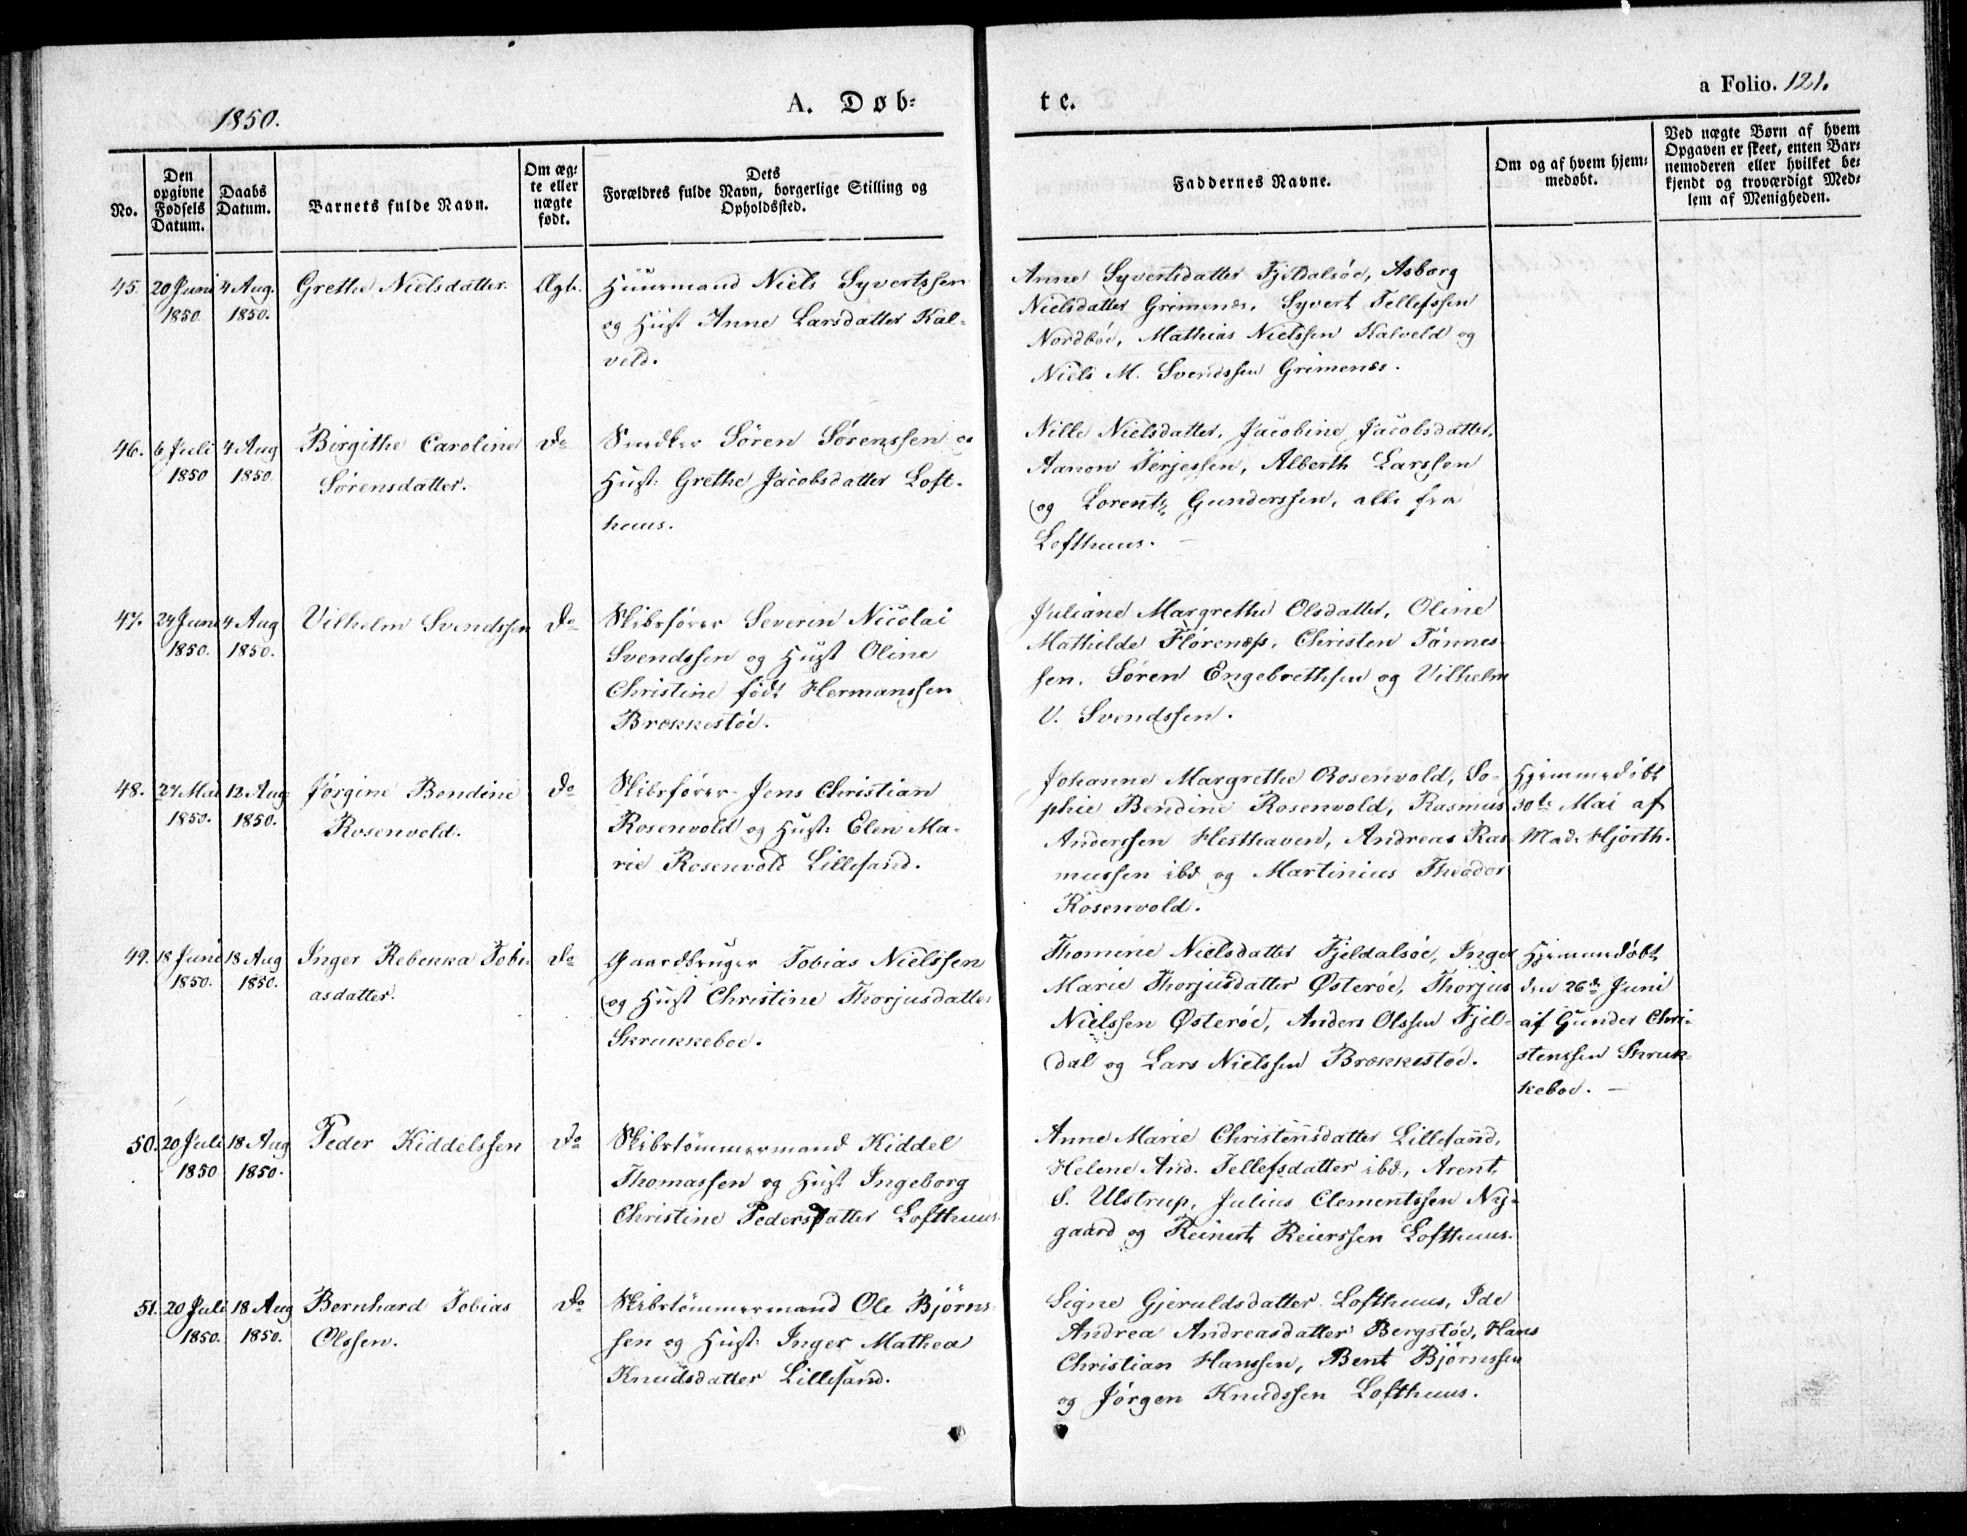 1850.
A. Døb-
te.
a Folio. 121.
No.
Den
opgivne
Fødsels
Datum.
Daabs
Datum.
Barnets fulde Navn.
Om æg-
te eller
uægte
født.
Dets
Forældres fulde Navn, borgerlige Stilling og
Opholdssted.
Faddernes Navne.
Om og af hvem hjem-
medøbt.
Ved uægte Børn af hvem
Opgaven er skeet, enten Bar-
nemoderen eller hvilket be-
kjendt og troværdigt Med-
lem af Menigheden.
45. 20 Juni 4 Aug. Grethe Nielsdatter. Ægte. Huusmand Niels Syvertssen
1850 1850. og Hust Anne Larsdatter Kal-
veld.
Anne Syvertsdatter Fjeldalsöe, Asborg
Nielsdatter Grimenæs, Syvert Tellefssen
Nordböe, Mathias Nielssen Kalveld og
Niels M. Svendssen Grimenæs.
46. 6 Juli 4 Aug Birgithe Caroline Do Snedker Sören Sörenssen og
1850 1850. Sörensdatter. Hust: Grethe Jacobsdatter Loft-
huus.
Nille Nielsdatter, Jacobine Jacobsdatter,
Aanon Terjessen, Alberth Larssen
og Lorents Gunderssen, alle fra
Lofthuus.
47. 24 Juni 4 Aug Vilhelm Svendssen Do Skibsförer Severin Nicolai
1850. 1850. Svendssen og Hust Oline
Christine födt Hermanssen
Brækkestöe.
Juliane Margrethe Olsdatter, Oline
Mathilde Florenæss, Christen Tönnes-
sen, Sören Engebrethsen og Vilhelm
V. Svendssen.
48. 27 Mai 12 Aug Jørgine Bendine Do Skibsförer Jens Christian
1850. 1850. Rosenvold. Rosenvold og Hust: Elen Ma-
rie Rosenvold Lillesand.
Johanne Margrethe Rosenvold, So-
phie Bendine Rosenvold, Rasmus
Anderssen Hesthaven, Andreas Ras-
mussen ibd og Martinius Theodor
Rosenvold.
Hjemmedøbt
30te Mai af
Mad. Hjorth.
49. 18 Juni 18 Aug Inger Rebekka Tobi- Do Gaardbruger Tobias Nielssen
1850. 1850. asdatter. og Hust Christine Thorjusdatter
Skrukkeboe.
Thomine Nielsdatter Fjeldalsöe, Inger
Marie Thorjusdatter Østeröe, Thorjus
Nielssen Østeröe, Anders Olssen Fjel-
dal og Lars Nielssen Brækkestöe.
Hjemmedøbt
den 26de Juni
af Gunder Chri-
stenssen Skruk-
keboe.
50. 20 Juli 18 Aug Peder Kiddelssen Do Skibstömmermand Kiddel
1850 1850. Thomassen og Hust Ingeborg
Christine Pedersdatter Lofthuus.
Anne Marie Christensdatter Lillesand,
Helene And. Tellefsdatter ibd, Arent
S. Ulstrup, Julius Clementssen Ny-
gaard og Reinert Reierssen Lofthuus.
51. 20 Juli 18 Aug Bernhard Tobias Do Skibstömmermand Ole Björns-
1850. 1850. Olssen. sen og Hust: Inger Mathea
Knudsdatter Lillesand.
Signe Gjeruldsdatter Lofthuus, Ide
Andrea Andreasdatter Bergstöe, Hans
Christian Hanssen, Bent Björnssen
og Jörgen Knudssen Lofthuus.